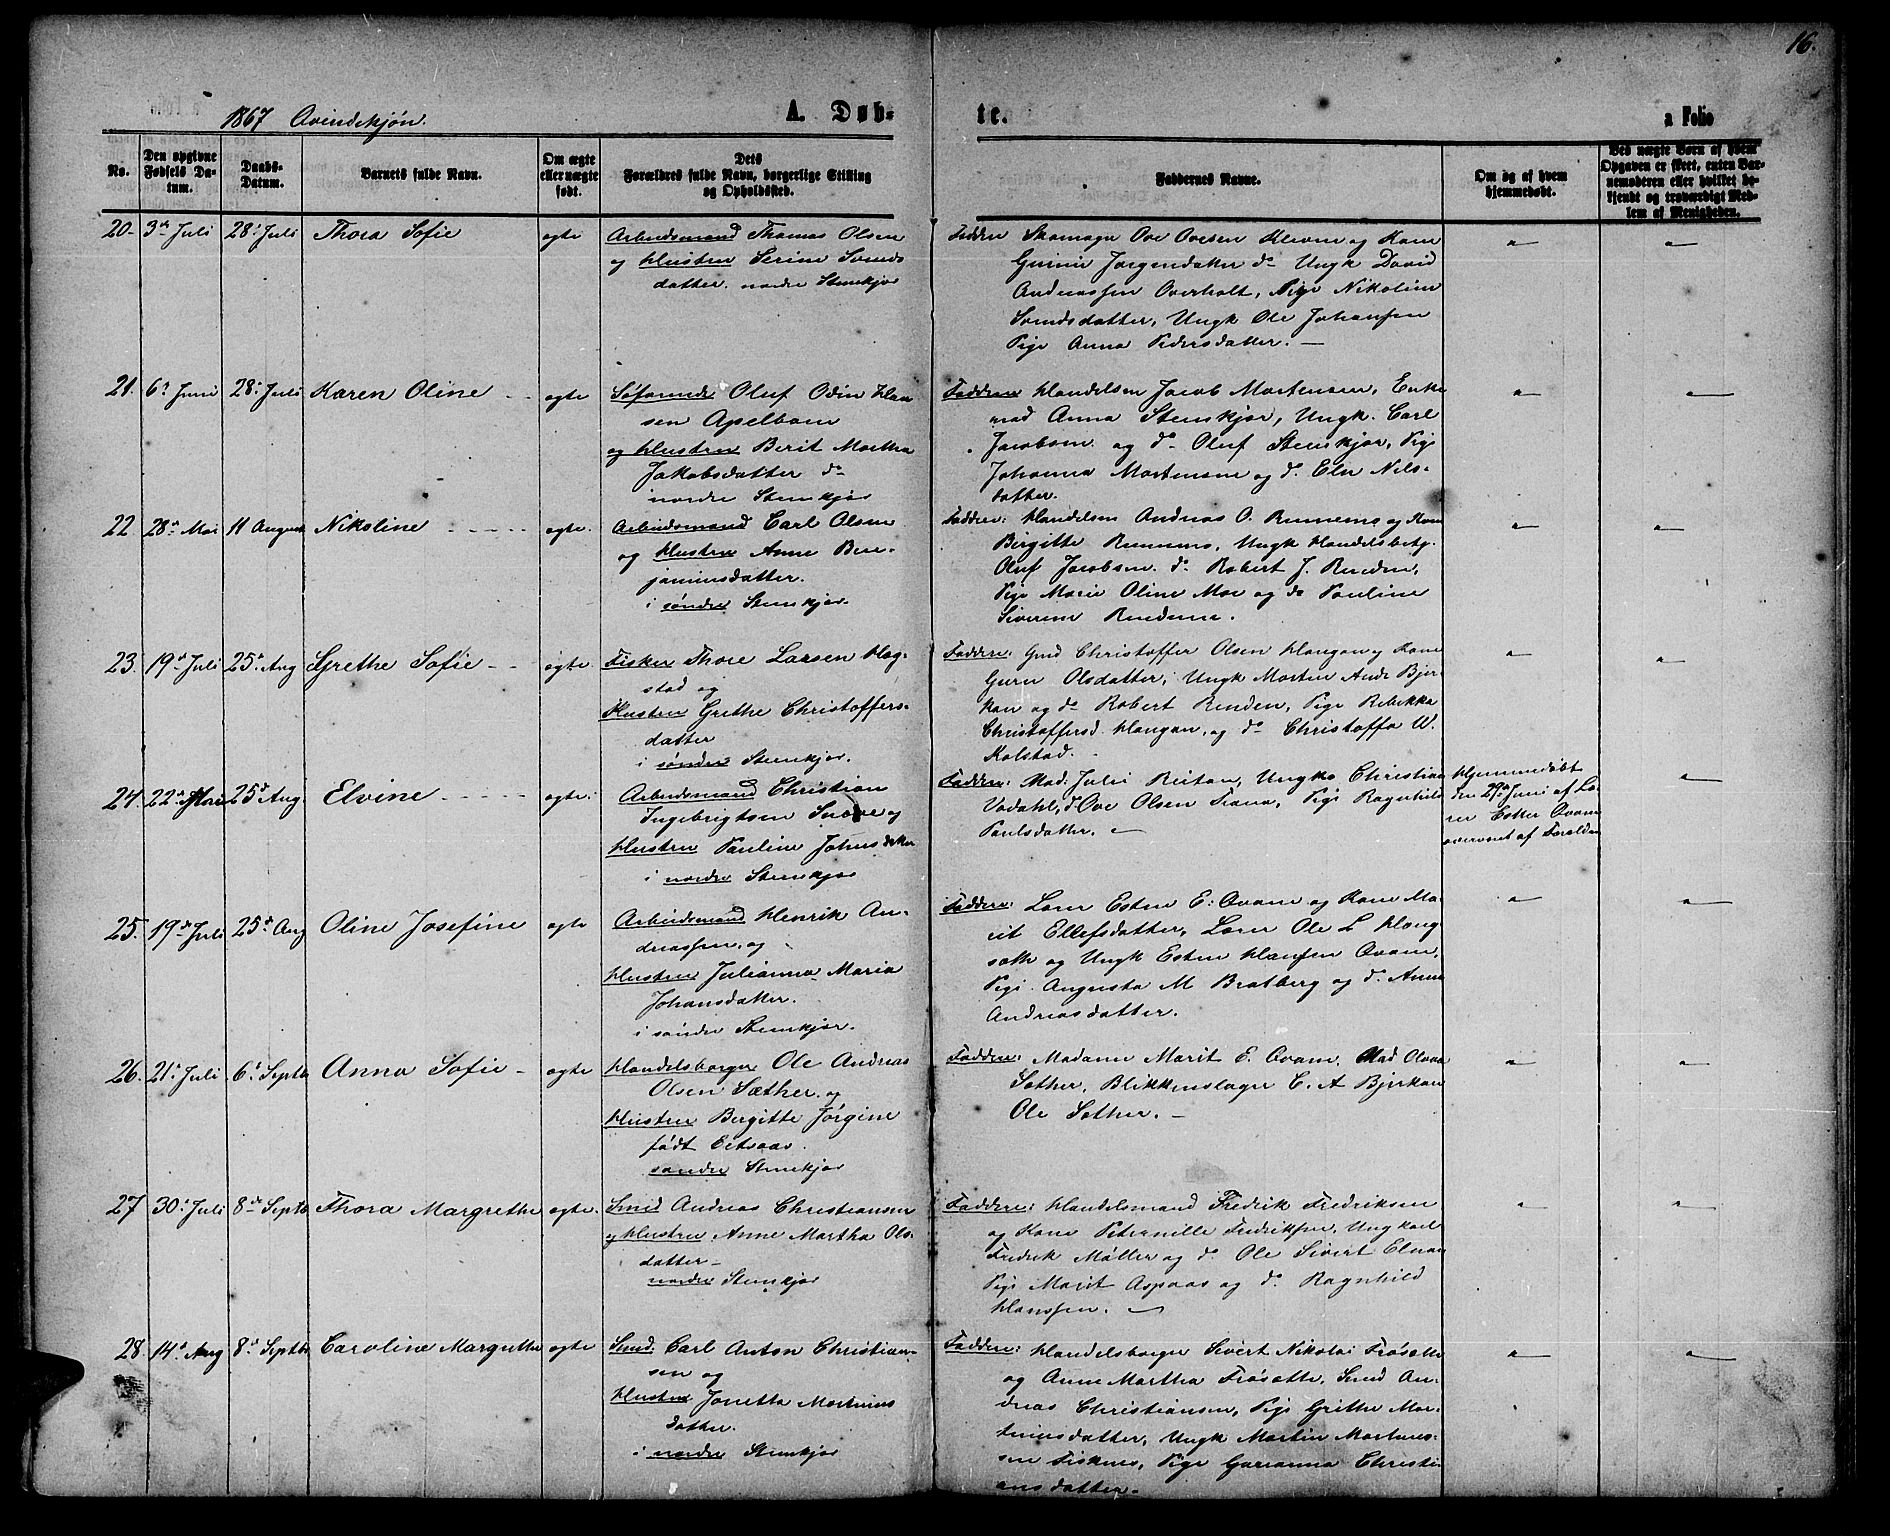 16.
1867 Qvindekjøn.
A. Døb-
te.
a Folio
No.
Den opgivne
Fødsels Da-
tum.
Daabs-
Datum.
Barnets fulde Navn.
Om ægte
eller uægte
født.
Dets
Forældres fulde Navn, borgerlige Stilling
og Opholdssted.
Faddernes Navne.
Om og af hvem
hjemmedøbt.
Ved uægte Børn af hvem
Opgaven er skeet, enten Bar-
nemoderen eller hvilket be-
kjendt og troværdigt Med-
lem af Menigheden.
20 3die Juli 28de Juli Thora Sofie ægte
Arbeidsmand Thomas Olsen
og Hustru Serine Svends
datter. nordre Steenkjær
Faddere Skomager Ove Ovesen Kleven og Kone
Gurine Jørgensdatter do Ungk David
Andreassen Overholt, Pige Nikoline
Svendsdatter, Ungk Ole Johansen
Pige Anna Pedersdatter. —
21. 6te Juni 28de Juli Karen Oline ægte
Søfarende Oluf Odin Han
sen Apelbom
og Hustru Berit Martha
Jakobsdatter do
nordre Steenkjær
Faddere Handelsm Jacob Mortensen, Enke
mad Anna Steenkjær, Ungk. Carl
Jacobsen og do Oluf Steenkjær, Pige
Johanna Mortensen og do Elen Nils-
datter.
22 28de Mai 11 August Nikoline ægte.
Arbeidsmand Carl Olsen
og Hustru Anne Ben-
jaminsdatter.
i søndre Steenkjær.
Faddere: Handelsm Andreas O. Remmems og Kone
Birgitte Remmems, Ungk Handelsbetj.
Oluf Jacobsen. do Robert J. Renden,
Pige Marie Oline Moe og do Pauline
Siverine Rendene.
23. 19de Juli 25de Aug Grethe Sofie ægte
Fisker Thore Larsen Hag-
stad og
Hustru Grethe Christoffers-
datter
i søndre Steenkjær.
Faddere: Gmd Christoffer Olsen Haugan og Kone
Guru Olsdatter, Ungk Morten Ands Bjer-
kan og do Robert Renden, Pige Rebekka
Christoffersd. Haugan, og do Christoffa W.
Kolstad.
24. 22de 25de Aug. Elvine ægte.
Arbeidsmand Christian
Ingebrigtsen Snove og
Hustru Pauline Johnsdatter
i nordre Steenkjær
Faddere: Mad: Juli Reitan, Ungka Christian
Vodahl, do Ove Olsen Trana, Pige Ragnhild
Paulsdatter.
Hjemmedøbt
den 29de Juni af Læ-
rer Esten Qvam
overvært af Foreldre
25. 19de Juli 25de Aug Oline Josefine ægte
Arbeidsmand Henrik An-
dreassen, og
Hustru Julianna Maria
Johansdatter.
i søndre Steenkjær.
Faddere: Lærer Esten E: Qvam og Kone Ma-
rit Ellefsdatter, Lærer Ole L Haug-
sæth og Ungk Esten Hansen Qvam,
Pige Augusta M Bratberg og do Anne
Andreasdatter.
26. 21de Juli 6te Septb Anna Sofie ægte
Handelsborger Ole Andreas
Olsen Sæther. og
Hustru Birgitte Jørgine
født Eitraas.
søndre Steenkjær
Faddere: Madame Marit E. Qvam. Mad Olava
Sæther, Blikkenslager C. A Bjerkan
Ole Sæther. —
27 30te Juli 8de Septb Thora Margrethe ægte.
Smed Andreas Christiansen
og Hustru Anne Martha Ols-
datter
nordre Steenkjær
Faddere: Handelsmand Fredrik Fredriksen
og Kone Peternille Fredriksen, Ungkarl
Fredrik Møller og do Ole Sivert Elnan
Pige Marit Aspaas og do Ragnhild
Hanssen.
28. 14de Aug 8de Septb Caroline Margrethe ægte
Smed: Carl Anton Christian-
sen og
Hustru Jonetta Martinus
datter.
i nordre Steenkjær
Faddere: Handelsborger Sivert Nikolai Frøseth
og Anne Martha Frøseth, Smed An-
dreas Christiansen, Pige Grethe Mar-
tinusdatter, Ungk Martin Martinus-
sen Fiskens, Pige Gurianna Christi-
ansdatter.